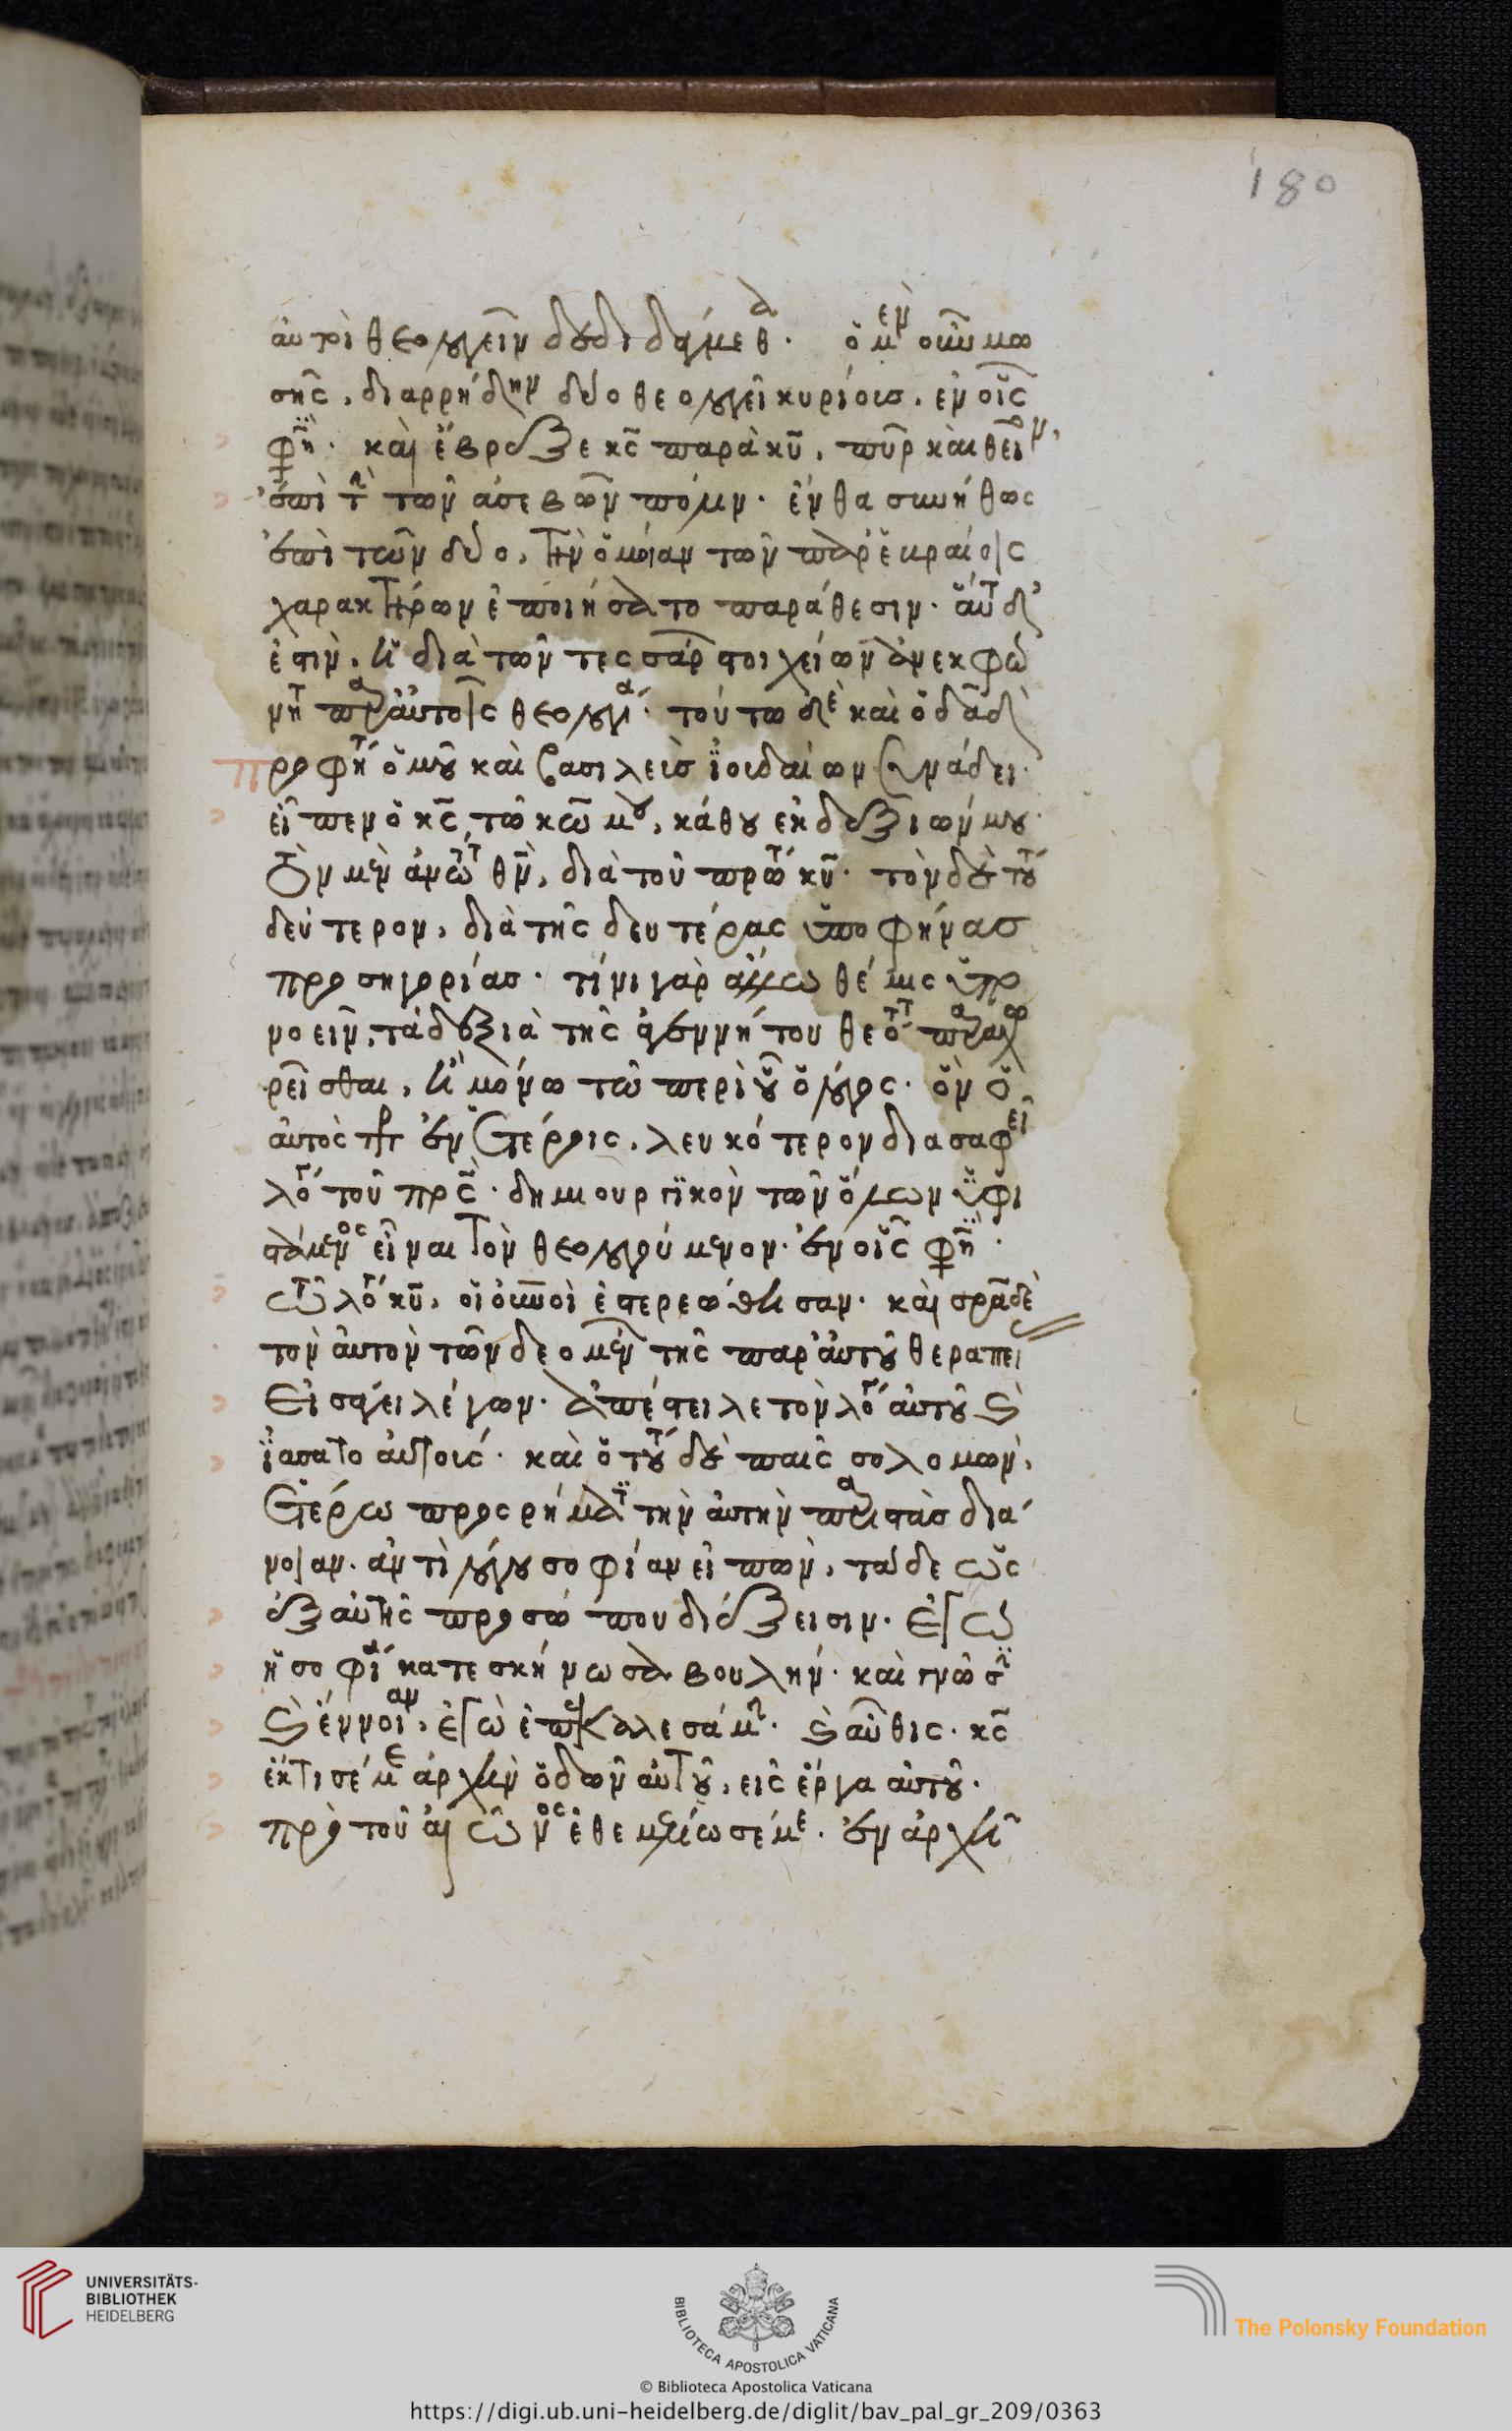 180
αὐτοὶ θεολογεῖν δεδιδάγμεθα. ὁ μὲν οὖν μω
σῆς, διαρρήδην δύο θεολογεῖ κυρίους, ἐν οἷς
φησὶ. καὶ ἔβρεξε κς παρὰ κυ, πῦρ καὶ θεῖον,
ἐπὶ τὴν τῶν ἀσεβῶν πόλιν. ἔνθα συνήθως
ἐπὶ τῶν δύο, τὴν ὁμοίαν τῶν παρ' ἑβραίοις
χαρακτήρων ἐποιήσατο παράθεσιν. αὕτη δ'
ἐστὶν, ἡ διὰ τῶν τεσσάρων στοιχείων ἀνεκφώ
νητος παρ' αὐτοῖς θεολογία. τούτω δὲ καὶ ὁ δαδ
προφήτης ὁμοῦ καὶ βασιλεὺς ἰουδαίων συνάδει.
εἶπεν ὁ κς τῶ κω μου, κάθου ἐκ δεξιῶν μου.
τὸν μὲν ἀνωτάτω θν, διὰ τοῦ πρώτου κυ. τὸν δὲ τούτου
δεύτερον, διὰ τῆς δευτέρας ὑποφήνας
προσηγορίας. τίνι γὰρ ἄλλω θέμις ὑπο
νοεῖν, τὰ δεξιὰ τῆς ἀγεννήτου θεότητος παραχω
ρεῖσθαι, ἢ μόνω τῶ περὶ οὗ ὁ λόγος. ὃν ὁ
αὐτὸς προφήτης ἐν ἑτέροις, λευκότερον διασαφεῖ
λόγον τοῦ πρς. δημιουργικὸν τῶν ὅλων ὑφι
στάμενος εἶναι τὸν θεολογούμενον. ἐν οἷς φησὶ.
τῶ λόγω κυ, οἱ οὐνοὶ ἐστερεώθησαν. καὶ σρα δὲ
τὸν αὐτὸν τῶν δεομένων τῆς παρ' αὐτοῦ θεραπεί
εἰσάγει λέγων. ἀπέστειλε τὸν λόγον αὐτοῦ καὶ
ἰάσατο αὐτούς. καὶ ὁ τούτου δὲ παῖς σολομὼν,
ἑτέρω προσρήματι τὴν αὐτὴν παραστὰς διά
νοιαν. ἀντὶ λόγου σοφίαν εἰπὼν, τάδε ὡς
ἐξ αὐτῆς προσώπου διέξεισιν. ἐγὼ
ἡ σοφία κατεσκήνωσα βουλήν. καὶ γνῶσιν
καὶ ἔννοιαν, ἐγὼ ἐπεκαλεσάμην. καὶ αὖθις. κς
ἔκτισέ με ἀρχὴν ὁδῶν αὐτοῦ, εἰς ἔργα αὐτοῦ.
πρὸ τοῦ αἰῶνος ἐθεμελίωσέ με. ἐν ἀρχῆ
UNIVERSITÄTS-
BIBLIOTHEK
HEIDELBERG
BIBLIOTECA APOSTOLICA VATICANA
The Polonsky Foundation
© Biblioteca Apostolica Vaticana
https://digi.ub.uni-heidelberg.de/diglit/bav_pal_gr_209/0363